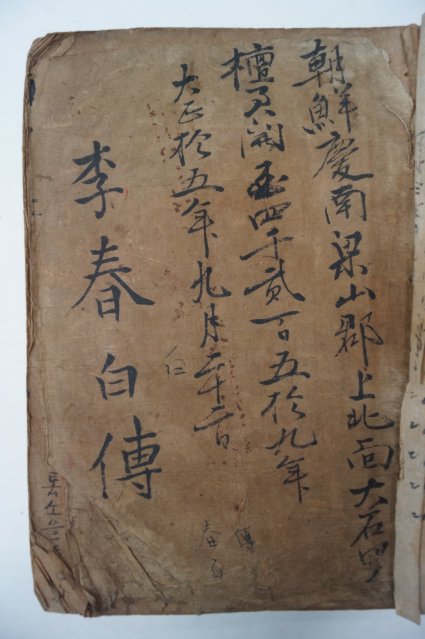 朝鮮慶南梁山郡上北面大石里
檀君開国四千貳百五拾九年
大正拾五年九月二十二日
李春白傳
白
傳
春百